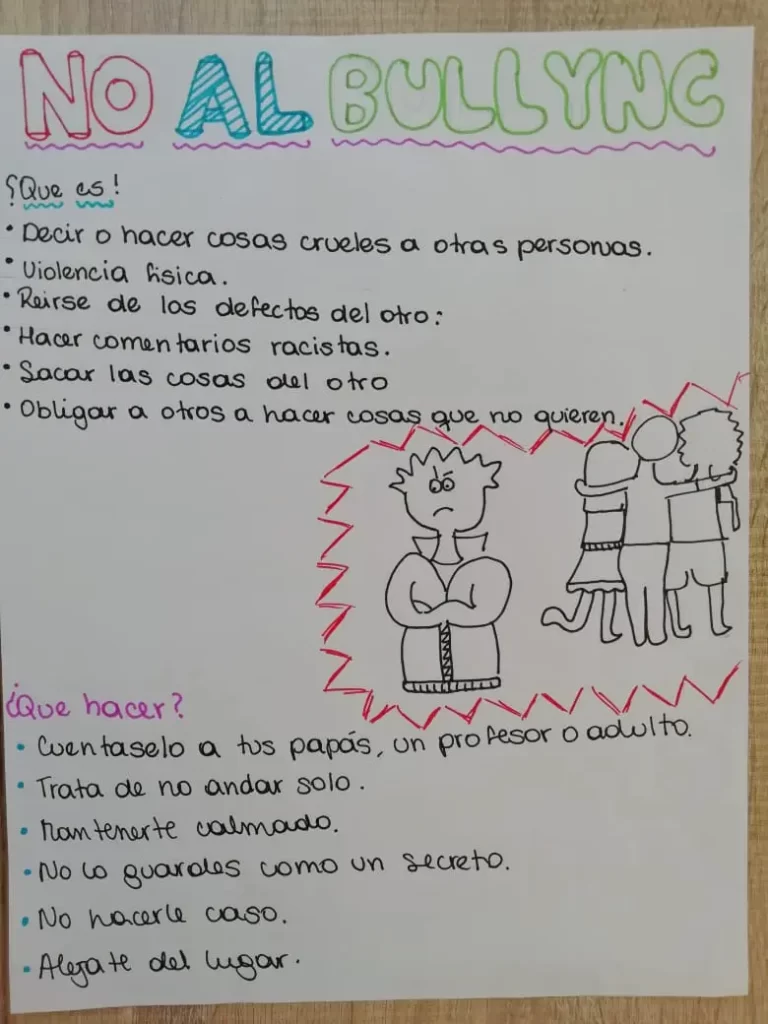 NO AL BULLYNG
¿Que es!
• Decir o hacer cosas crueles a otras personas.
• Violencia fisica.
• Reirse de los defectos del otro:
• Hacer comentarios racistas.
• Sacar las cosas del otro
• Obligar a otros a hacer cosas que no quieren.
¿Que hacer?
• Cuentaselo a tus papás, un profesor o adulto.
• Trata de no andar solo.
• Mantenerte calmado.
• No lo guardes como un secreto.
• No hacerle caso.
• Alejate del lugar.